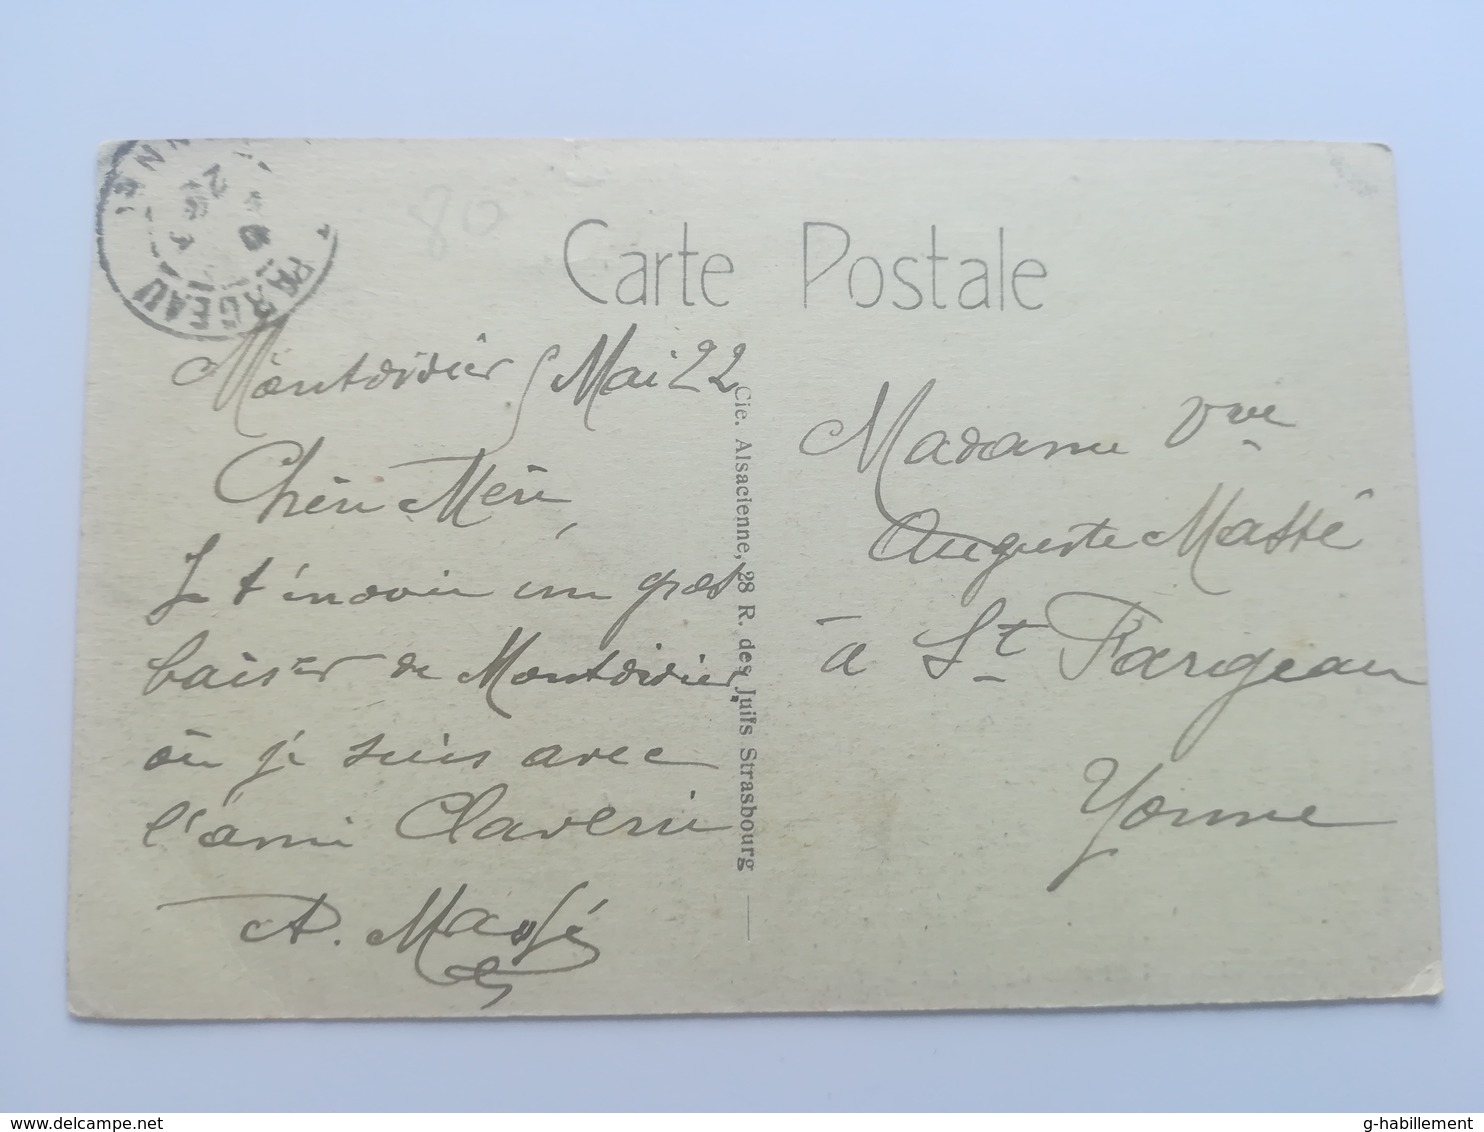 NNE
FARGEAU
80
Carte Postale
Montdidier 5 Mai 22
Chère Mère,
Je t'envoie un gros
baiser de Montdidier
où je suis avec
l'ami Claverie
A. Massé
Cie. Alsacienne, 28 R. des Juifs Strasbourg
Madame Vve
Auguste Massé
à St Fargeau
Yonne
delcampe.net
g-habillement